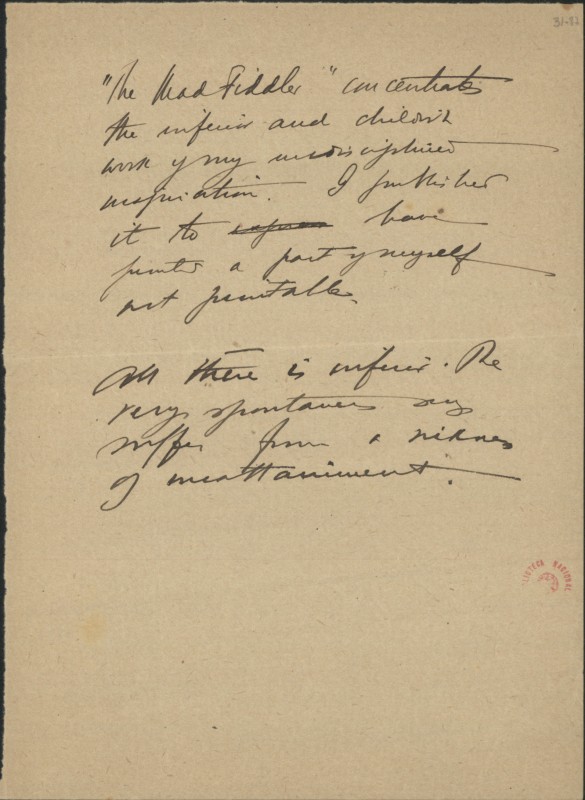 31-83
"The Mad Fiddler" concentrates
the inferior and childish
work of my undisciplined
imagination. I published
it to have
printed a part of myself
not printable.
All there is inferior. The
very spontaneous
suffer from a sickness
of unattainment.
BIBLIOTECA NACIONAL